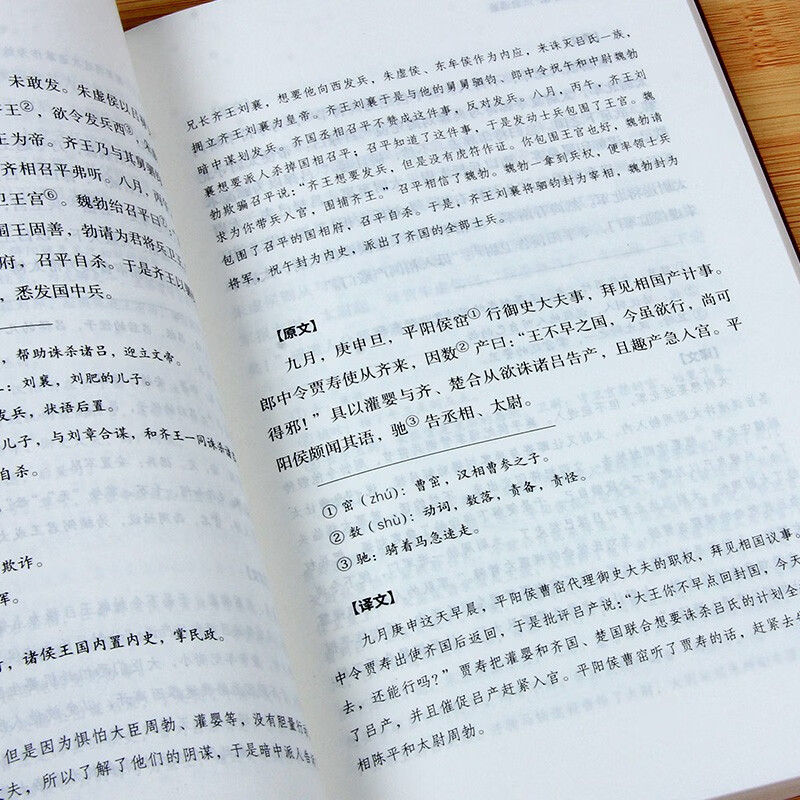 未敢发。朱虚侯以吕禄
齐王②，欲令发兵西③，
王为帝。齐王乃与其舅驷
齐相召平弗听。八月，丙
卫王宫⑥。魏勃绐召平曰⑦：
围王固善，勃请为君将兵卫王
府，召平自杀。于是齐王以驷
，悉发国中兵。
，帮助诛杀诸吕，迎立文帝。
：刘襄，刘肥的儿子。
发兵，状语后置。
儿子，与刘章合谋，和齐王一同诛杀诸吕
自杀。
欺诈。
军。
，诸侯王国内置内史，掌民政。
但是因为惧怕大臣周勃、灌婴等，没有胆量
丈夫，所以了解了他们的阴谋，于是暗中派人告诉
兄长齐王刘襄，想要他向西发兵，朱虚侯、东牟侯作为内应，来诛灭吕氏一族，
拥立齐王刘襄为皇帝。齐王刘襄于是与他的舅舅驷钧、郎中令祝午和中尉魏勃
暗中谋划发兵。齐国丞相召平不赞成这件事，反对发兵。八月，丙午，齐王刘
襄想要派人杀掉国相召平；召平知道了这件事，于是发动士兵包围了王宫。魏
勃欺骗召平说：“齐王想要发兵，但是没有虎符作证。你包围王宫也好，魏勃请
求为你带兵入宫，围捕齐王。”召平相信了魏勃。魏勃一拿到兵权，便率领士兵
包围了召平的国相府，召平自杀。于是，齐王刘襄将驷钧封为宰相，魏勃封为
将军，祝午封为内史，派出了齐国的全部士兵。
【原文】
九月，庚申旦，平阳侯窋①行御史大夫事，拜见相国产计事。
郎中令贾寿使从齐来，因数②产曰：“王不早之国，今虽欲行，尚可
得邪！”具以灌婴与齐、楚合从欲诛诸吕告产，且趣产急入宫。平
阳侯颇闻其语，驰③告丞相、太尉。
①窋（zhú）：曹窋，汉相曹参之子。
②数（shǔ）：动词，数落，责备，责怪。
③驰：骑着马急速走。
【译文】
九月庚申这天早晨，平阳侯曹窋代理御史大夫的职权，拜见相国议事。
中令贾寿出使齐国后返回，于是批评吕产说：“大王你不早点回封国，今天
去，还能行吗？”贾寿把灌婴和齐国、楚国联合想要诛杀吕氏的计划全
了吕产，并且催促吕产赶紧入宫。平阳侯曹窋听了贾寿的话，赶紧去
相陈平和太尉周勃。